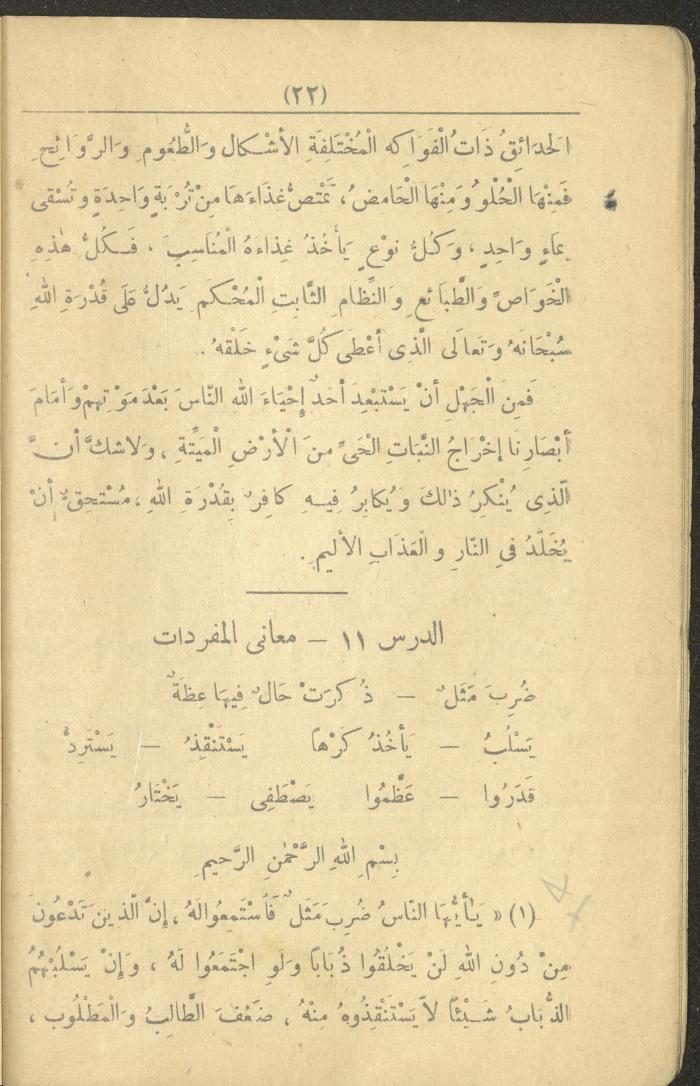 (٢٢)
الحدَائِقُ ذَاتُ الْفَوَاكِه الْمُخْتَلِفَةِ الأشْكال وَالطُّعُومِ وَالرَّوَائِحِ
فَمِنْهَا الْحُلْوُ وَمِنْهَا الْحَامضُ، تَمْتَصُّ غذَاءَهَا مِنْ تُرْبَةٍ وَاحِدَةٍ وتُسْقى
بِمَاءٍ وَاحِدٍ ، وَكُلُّ نَوْعٍ يَأْخُذُ غِذَاءَهُ الْمُنَاسِبَ ، فَكُلُّ هٰذِهِ
الْخَوَاصِّ وَالطَّبَائعِ وَالنِّظَامِ الثَّابِتِ الْمُحْكَمِ يَدُلُّ عَلَى قُدْرَةِ اللهِ
سُبْحَانَهُ وَتَعَالَى الَّذِى أَعْطَى كُلَّ شَىْءٍ خَلْقَهُ .
فَمِنَ الْجَهْلِ أَنْ يَسْتَبْعِدَ أَحَدٌ إِحْيَاءَ اللهِ النَّاسَ بَعْدَ مَوْتِهِمْ وَأَمَامَ
أَبْصَارِنا إخْرَاجُ النَّبَاتِ الْحَىِّ منَ الْأَرْضِ الْمَيِّتَةِ ، وَلَا شكَّ أَنَّ
الَّذِى يُنْكِرُ ذٰلكَ وَيُكابِرُ فِيهِ كافِرٌ بِقُدْرَةِ اللهِ ، مُسْتَحِقٌّ أَنْ
يُخَلَّدُ فىِ النَّارِ وَالْعَذَابِ الأَلِيمِ .
الدرس ١١ – معانى المفردات
ضُرِبَ مَثَلٌ – ذُكِرَتْ حَالٌ فِيهَا عِظَةٌ
يَسْلُبُ – يَأْخُذُ كَرْهاً يَسْتَنْقِذُ – يَسْتَرِدُّ
قَدَرُوا – عَظَّمُوا يَصْطَفِى – يَخْتَارُ
بِسْمِ اللهِ الرَّحْمٰنِ الرَّحِيمِ
(١) « يَٰأَيُّهَا النَّاسُ ضُرِبَ مَثَلٌ فَاسْتَمِعُوا لَهُ ، إِنَّ الَّذِينَ تَدْعُونَ
مِنْ دُونِ اللهِ لَنْ يَخْلُقُوا ذُبَاباً وَلَوِ اجْتَمَعُوا لَهُ ، وَإِنْ يَسْلُبْهُمُ
الذُّبَابُ شَيْئًا لاَ يَسْتَنْقِذُوهُ مِنْهُ ، ضَعُفَ الطَّالِبُ وَالْمَطْلُوب ،